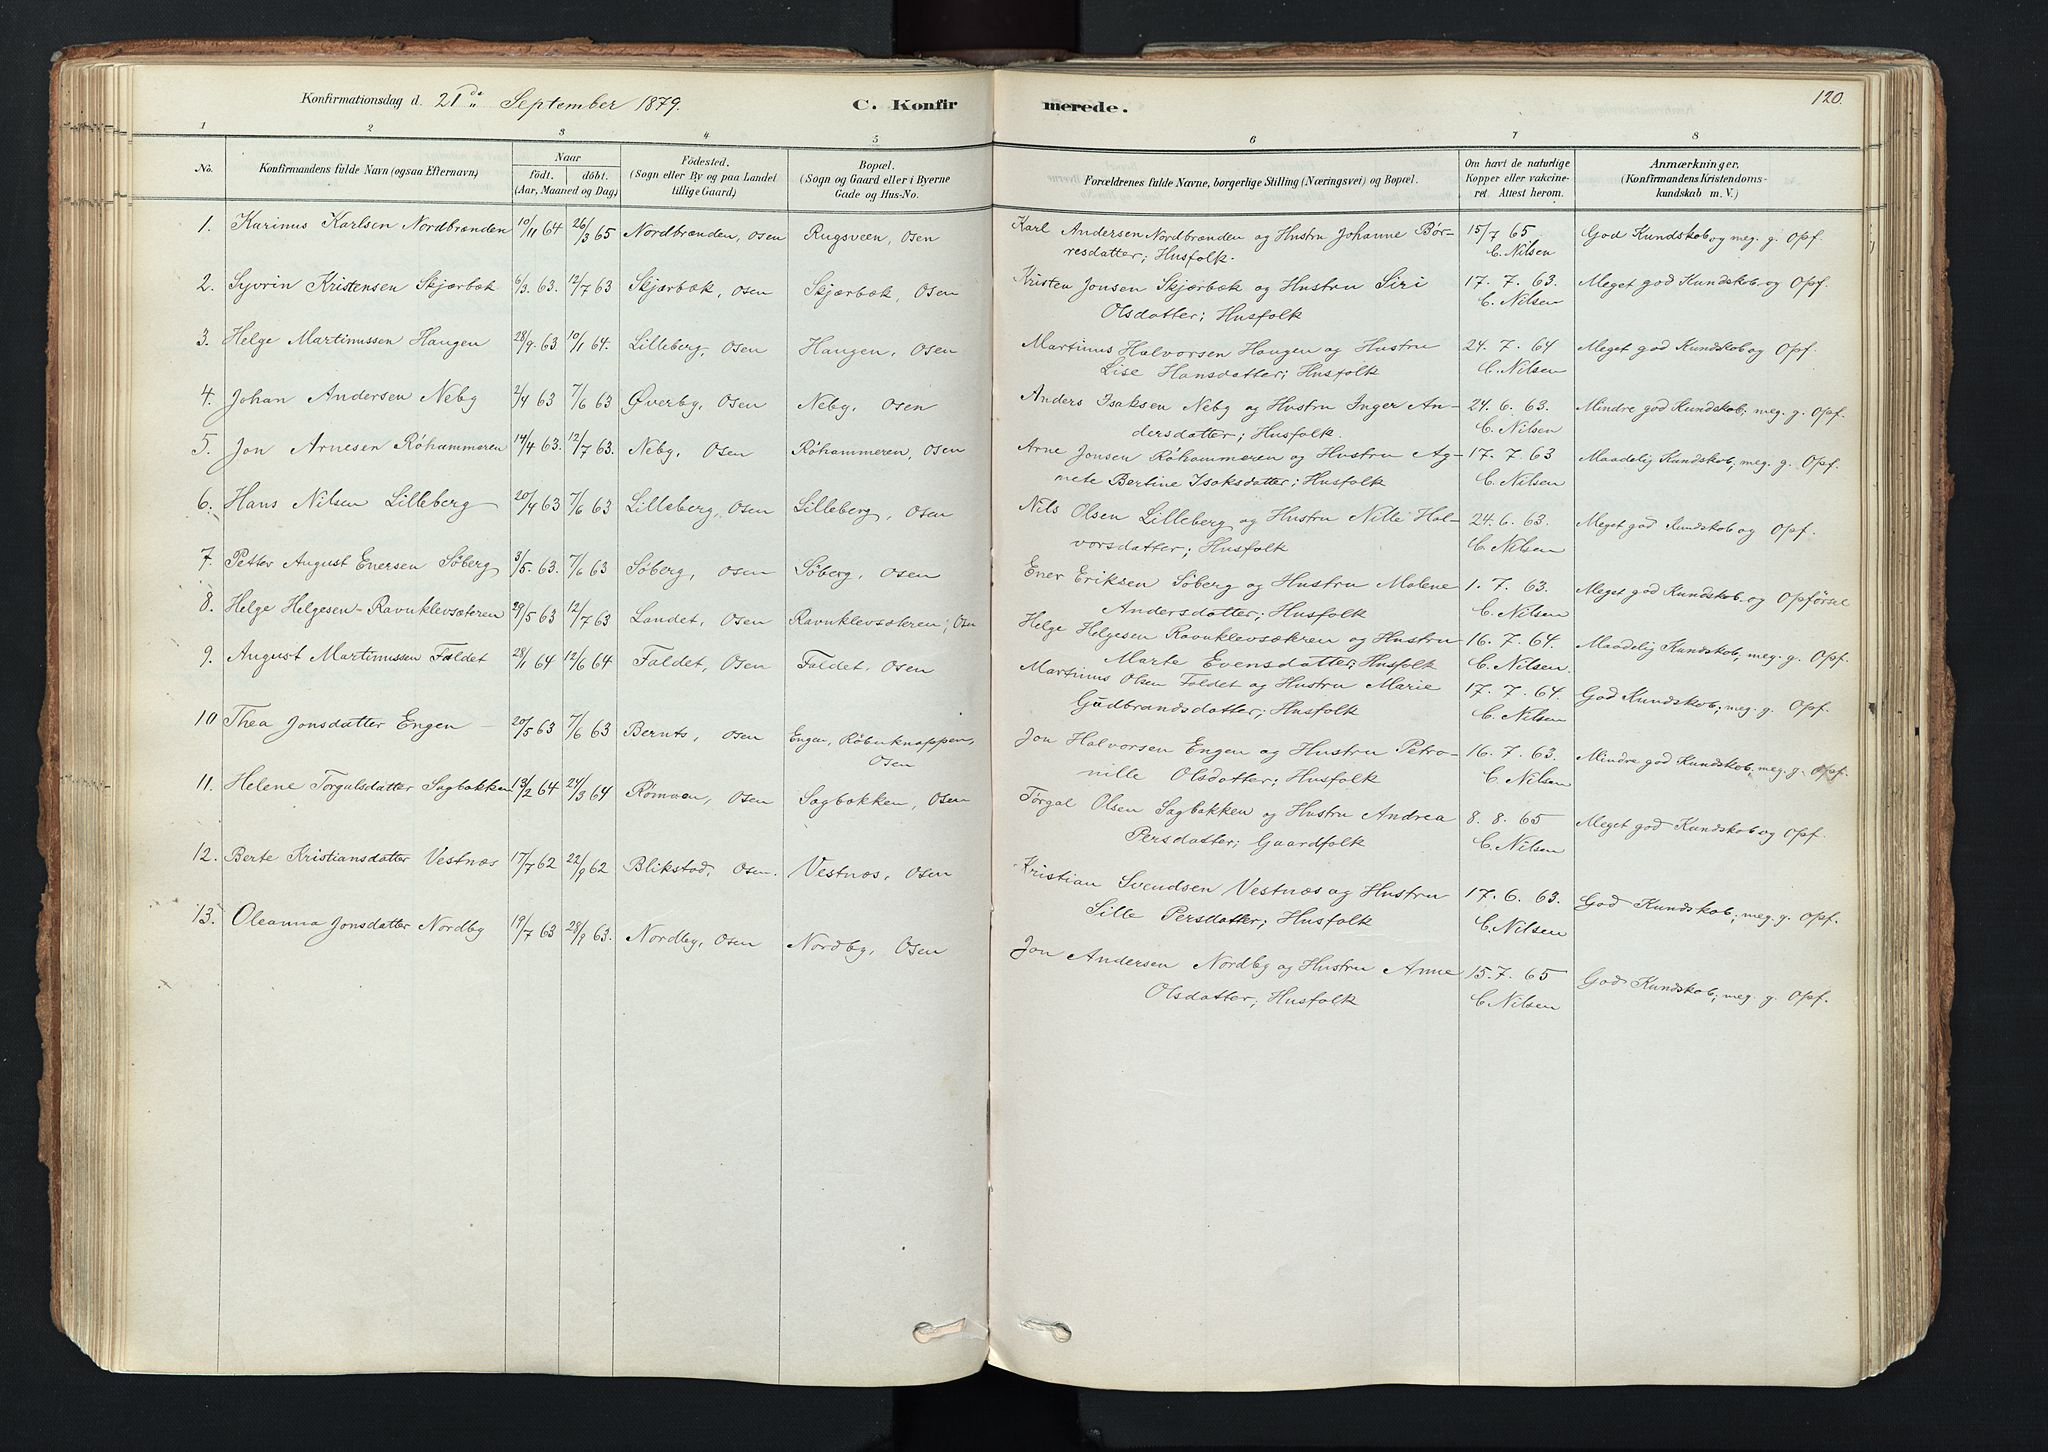 120.
Konfirmationsdag d. 21de September 1879.
C. Konfirmerede.
1 2 3 4 5 6 7 8
No. Konfirmandens fulde Navn (ogsaa Efternavn) Naar født. døbt. (Aar, Maaned og Dag) Fødested. (Sogn eller By og paa Landet tillige Gaard) Bopæl. (Sogn og Gaard eller i Byerne Gade og Hus-No. Forældrenes fulde Navne, borgerlige Stilling (Næringsvei) og Bopæl. Om havt de naturlige Kopper eller vakcineret. Attest herom. Anmærkninger. (Konfirmandens Kristendomskundskab m. V.)
1. Karinus Karlsen Nordbrænden 10/11 64 26/3 65 Nordbrænden, Osen Rugsveen, Osen Karl Andersen Nordbrænden og Hustru Johanne Bør- 15/7 65 God Kundskob og meg. g. Opf.
resdatter; Husfolk. C. Nilsen
2. Syvrin Kristensen Skjærbæk 6/3. 63. 12/7 63 Skjærbæk, Osen Skjærbæk, Osen Kristen Jonsen Skjærbæk og Hustru Siri 17. 7. 63. Meget god Kundskob og Opf.
Olsdatter; Husfolk C. Nilsen
3. Helge Martinussen Haugen 28/9. 63 10/1 64. Lilleberg, Osen Haugen, Osen Martinus Halvorsen Haugen og Hustru 24. 7. 64 Meget god Kundskob og Opf.
Lise Hansdatter; Husfolk C. Nilsen
4. Johan Andersen Neby 2/4 63 7/6 63 Øverby, Osen Neby, Osen Anders Isaksen Neby og Hustru Inger An- 24. 6. 63. Mindre god Kundskob; meg. g. Opf.
dersdatter; Husfolk. C. Nilsen
5. Jon Arnesen Röhammeren 14/4 63. 12/7 63. Neby, Osen Röhammeren, Osen Arne Jonsen Röhammeren og Hustru Ag- 17. 7. 63 Maadelig Kundskob; meg. g. Opf.
nete Bertine Isaksdatter; Husfolk C. Nilsen
6. Hans Nilsen Lilleberg 20/4 63 7/6 63 Lilleberg, Osen Lilleberg, Osen Nils Olsen Lilleberg og Hustru Nille Hal- 24. 6. 63. Meget god Kundskob og Opf.
vorsdatter; Husfolk C. Nilsen
7. Petter August Enersen Söberg 3/5. 63. 7/6 63 Söberg, Osen Söberg, Osen Ener Eriksen Söberg og Hustru Malene 1. 7. 63. Meget god Kundskob og Opförsel
Andersdatter; Husfolk C. Nilsen
8. Helge Helgesen Ravnklevsæteren 29/5 63 12/7 63 Landet, Osen Ravnklevsæteren; Osen Helge Helgesen Ravnklevsæteren og Hustru 16. 7. 64. Maadelig Kundskob; meg. g. Opf.
Marte Evensdatter; Husfolk C. Nilsen
9. August Martinussen Faldet 28/1 64 12/6 64 Faldet, Osen Faldet, Osen Martinus Olsen Faldet og Hustru Marie 17. 7. 64. God Kundskob; meg. g. Opf.
Gudbrandsdatter; Husfolk C. Nilsen
10 Thea Jonsdatter Engen 20/5 63 7/6 63 Bernts, Osen Engen, Röbuknappen, Osen Jon Halvorsen Engen og Hustru Petro- 16. 7. 63. Mindre god Kundskob; meg. g. Opf.
nille Olsdatter; Husfolk C. Nilsen
11. Helene Torgalsdatter Sagbakken 13/2 64 24/3 64 Osen Sagbakken, Osen Torgal Olsen Sagbakken og Hustru Andrea 8. 8. 65 Meget god Kundskob og Opf.
Persdatter; Gaardfolk C. Nilsen
12. Berte Kristiansdatter Vestnæs 17/7 62 22/9 62 Blikstad, Osen. Vestnæs, Osen Kristian Svendsen Vestnæs og Hustru 17. 6. 63. God Kundskob; meg. g. Opf.
Sille Persdatter; Husfolk C. Nilsen
13. Oleanna Jonsdatter Nordby 19/7 63 28/9 63. Nordby, Osen Nordby, Osen Jon Andersen Nordby og Hustru Anne 15. 7. 65 God Kundskob; meg. g. Opf.
Olsdatter; Husfolk C. Nilsen